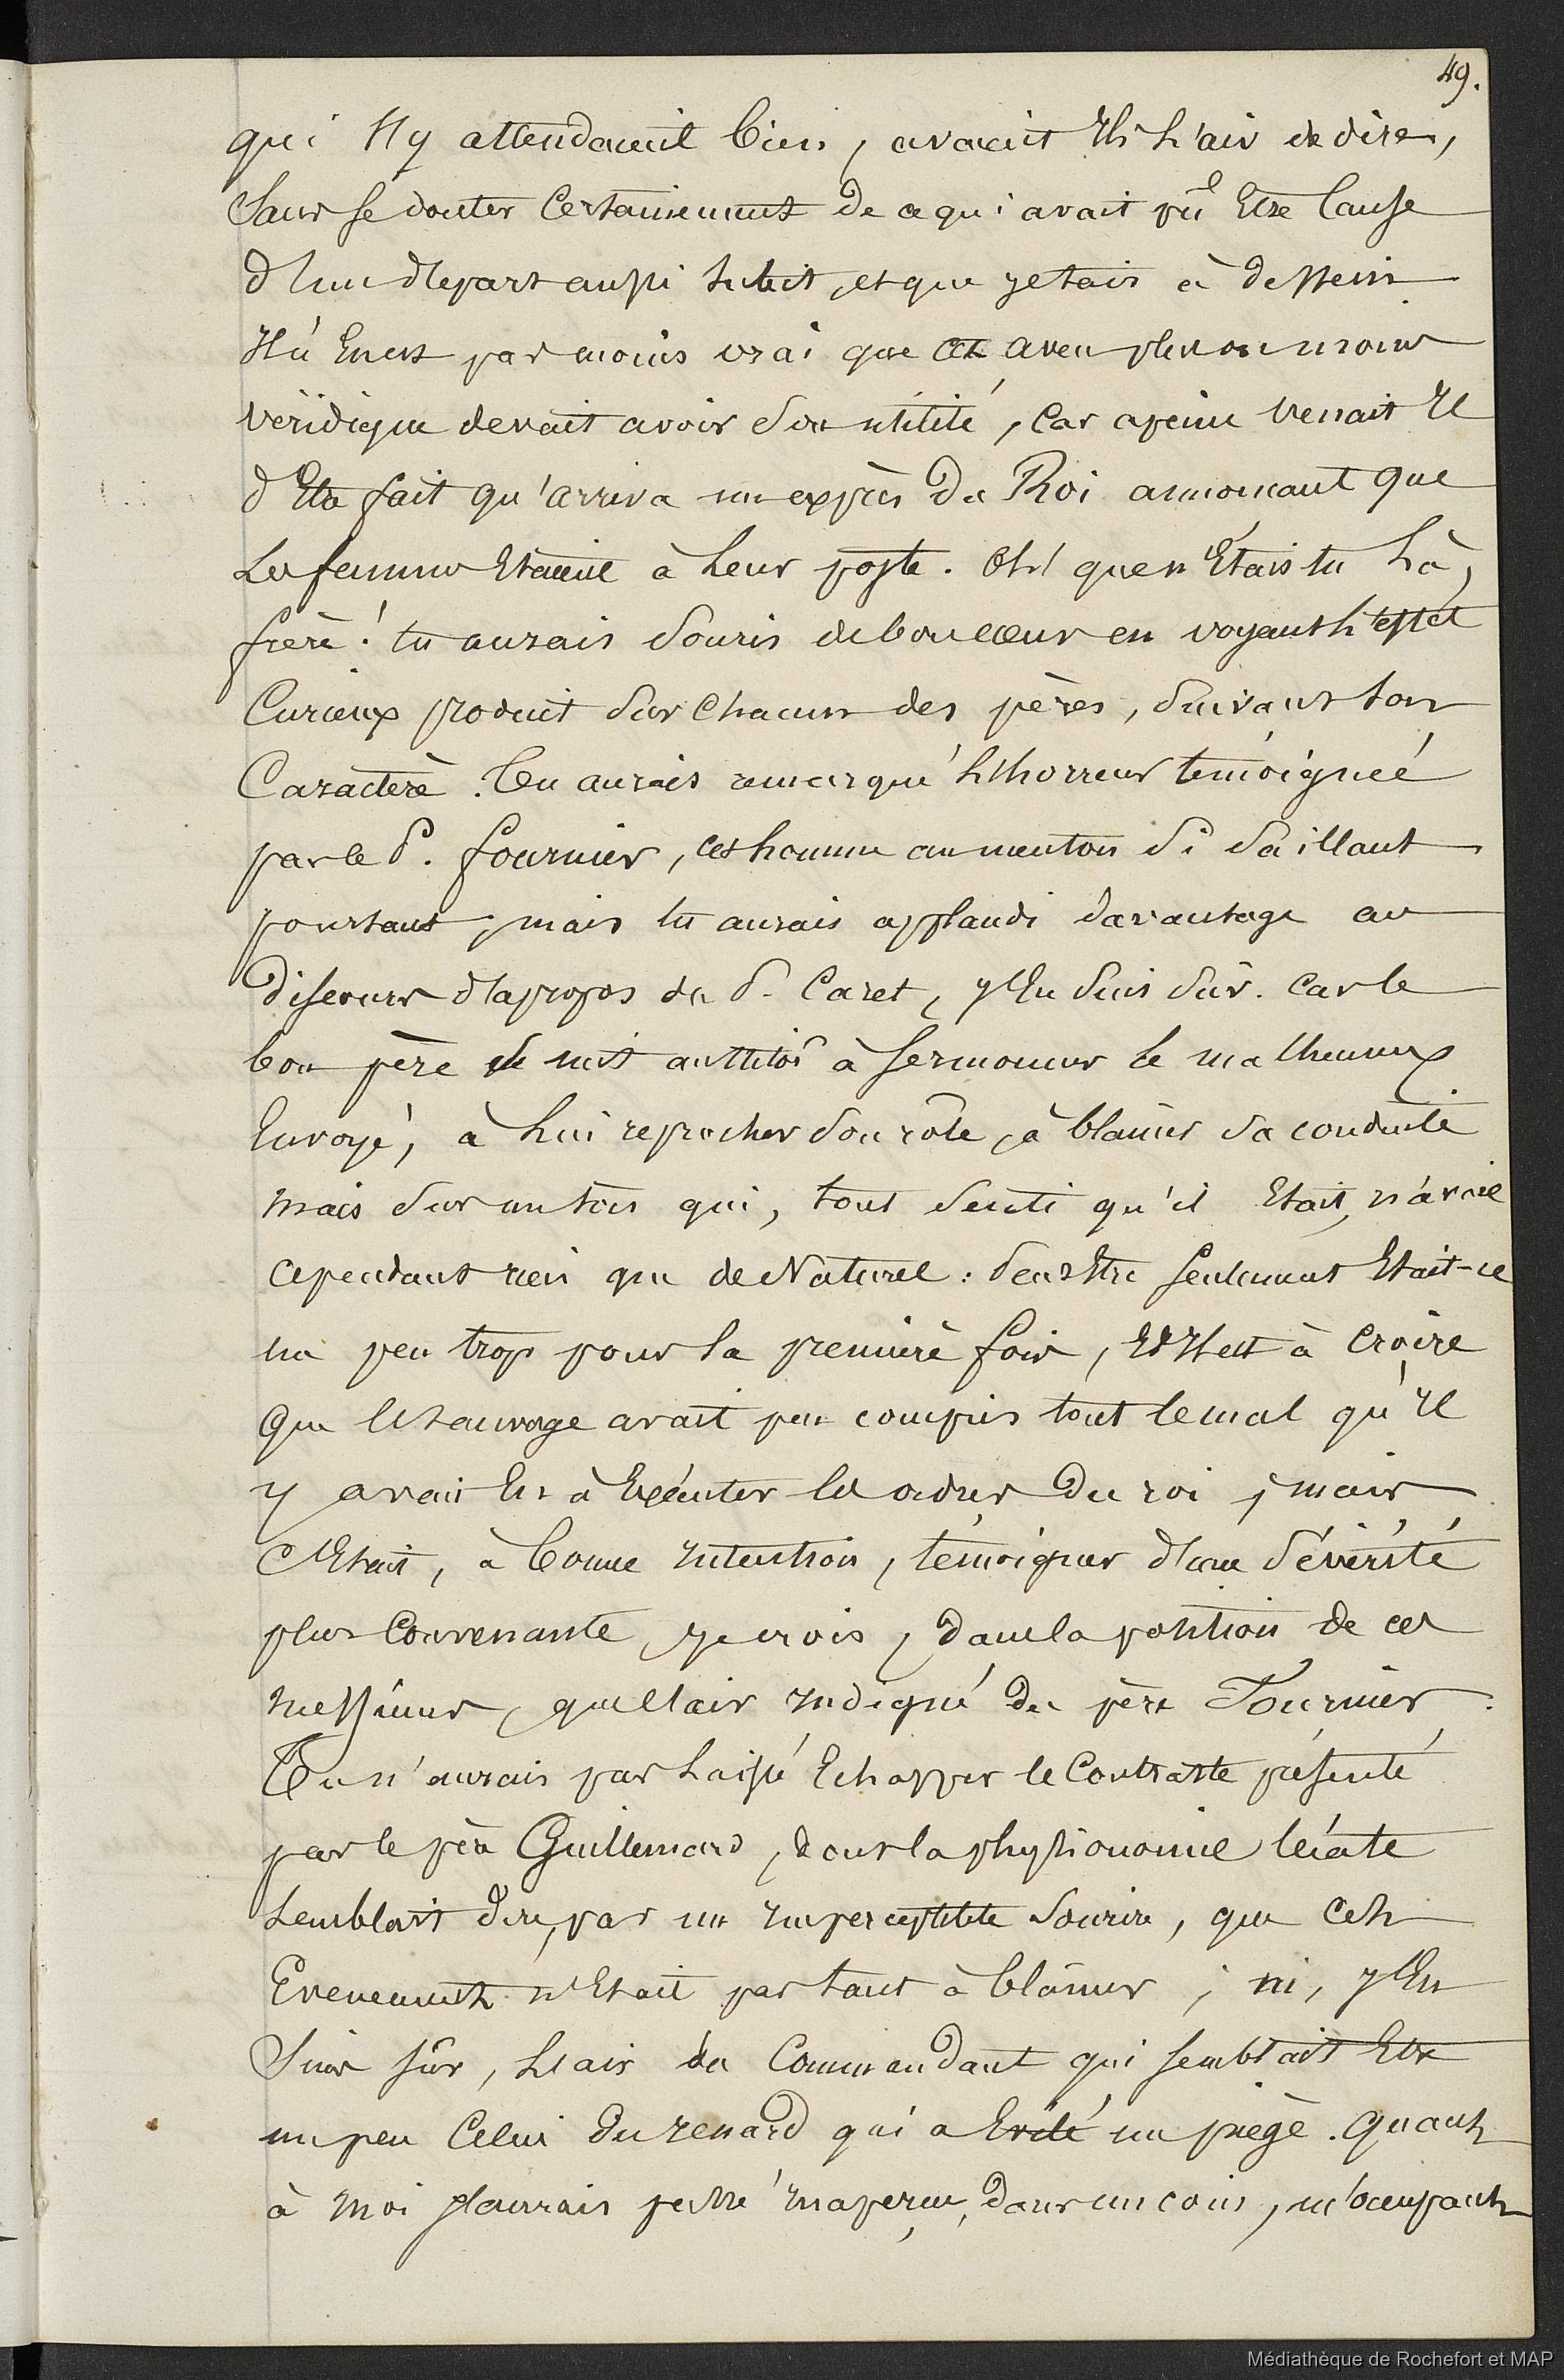 49.
qui s'y attendaient bien, avaient ils l'air de dire,
sans se douter certainement de ce qui avait pû être cause
d'un départ aussi subit, et que je tais à dessein
Il n'en est pas moins vrai que cet aveu plus ou moins
véridique devait avoir son utilité, car apeine venait il
d'être fait qu'arriva un exprès du Roi annoncant que
les femmes étaient à leur poste. Oh! que n'étais tu là,
frère! tu aurais souris de bon cœur en voyant l'effet
curieux produit sur chacun des pères, suivant son
caractère. Tu aurais remarqué l'horreur témoignée
par le P. fournier, cet homme au menton si saillant
pourtant, mais tu aurais applaudi davantage au
discours d'apropos du P. Caret, j'en suis sûr. Car le
bon père se mit aussitôt à sermoner le malheureux
envoyé, à lui reprocher son rôle, à blâmer sa conduite
mais sur un ton qui, tout senti qu'il était, n'avait
cependant rien que de Naturel: peut être seulement était-ce
un peu trop pour la première fois, et il est à croire
que le sauvage avait peu compris tout le mal qu'il
y avait eu à exécuter les ordres du roi; mais
c'était, à bonne intention, témoigner d'une sévérité
plus convenante, je crois, dans la position de ces
messieurs, que l'air indigné du père Fournier.
Tu n'aurais pas laissé échapper le contraste présenté
par le père Guillemard, dont la physionomie béate
semblait dire, par un imperceptible sourire, que cet
évenement n'était pas tant à blâmer; ni, j'en
suis sûr, l'air du Commandant qui semblait être
un peu celui du renard qui a évité un piège. Quant
à moi j'aurais passé inaperçu, dans un coin, m'occupant
Médiathèque de Rochefort et MAP